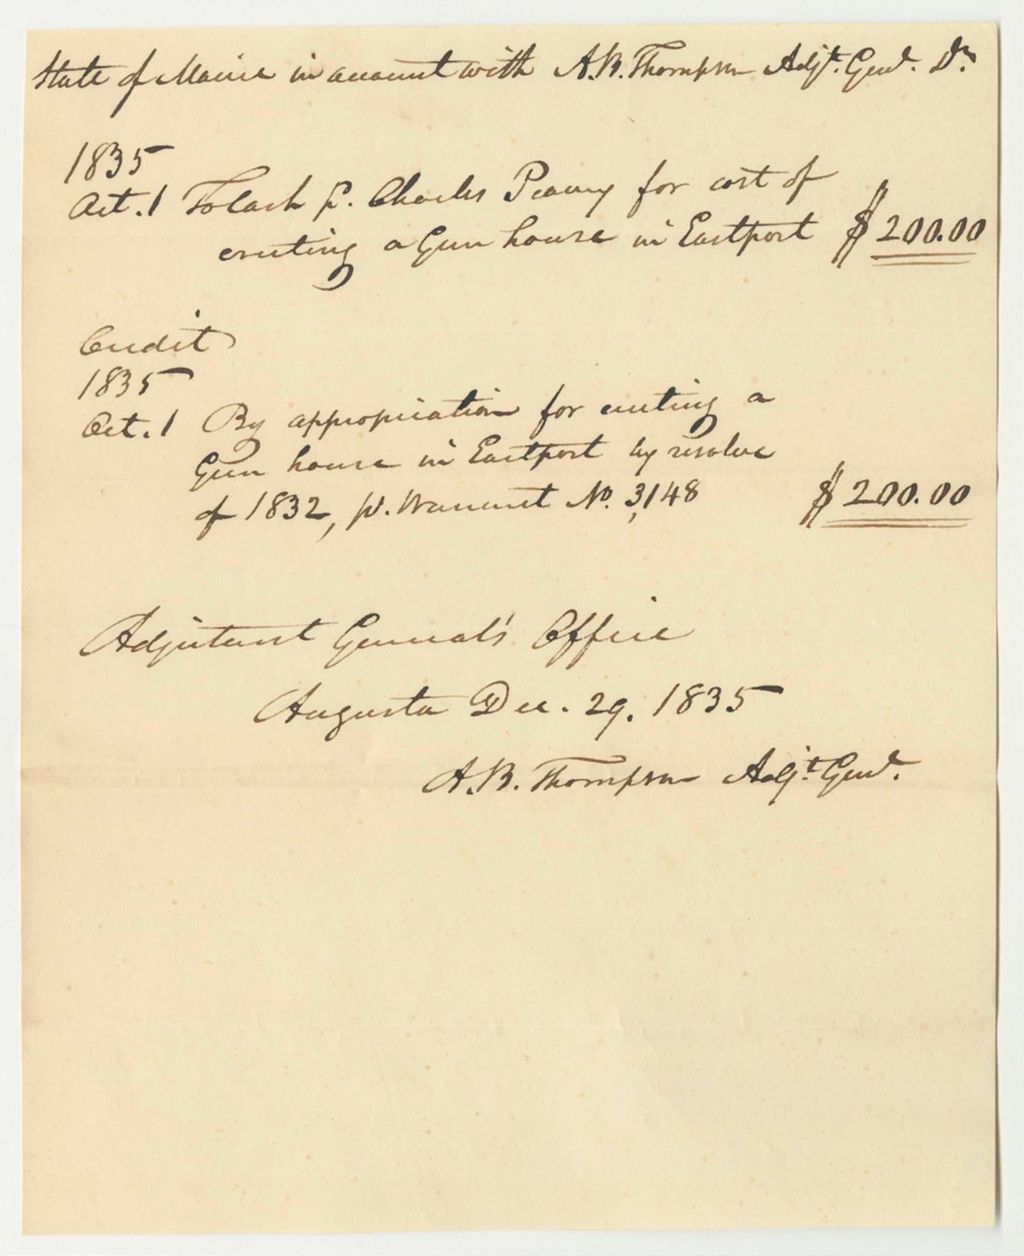 State of Maine in account with A.B. Thompson Adjt. Genl. Dr.
1835
Oct. 1 To Cash p. Charles Peavey for cost of
erecting a Gun house in Eastport $200.00
Credit
1835
Oct. 1 By appropriation for erecting a
Gun house in Eastport by resolve
of 1832, p. Warrant No. 3,148 $200.00
Adjutant General's Office
Augusta Dec. 29. 1835
A.B. Thompson Adjt. Genl.